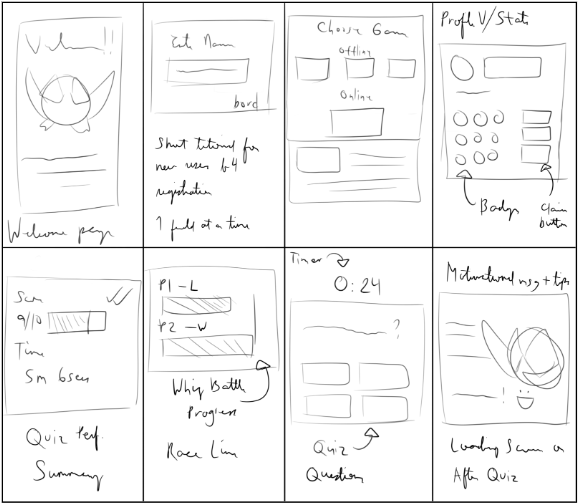 Welcome!!
Welcome page
Enter Name
Short tutorial for
new users b4
registration
1 field at a time
Choose Game
Offline
Online
Profile V/Stats
Badges
Claim
button
Score
9/10
Time
5m 6sec
Quiz Perf.
Summary
P1 - L
P2 - W
Whip Battle
Progress
Race Line
Timer
0:24
?
Quiz
Question
Motivational msg + tips
!
Loading Screen or
After Quiz